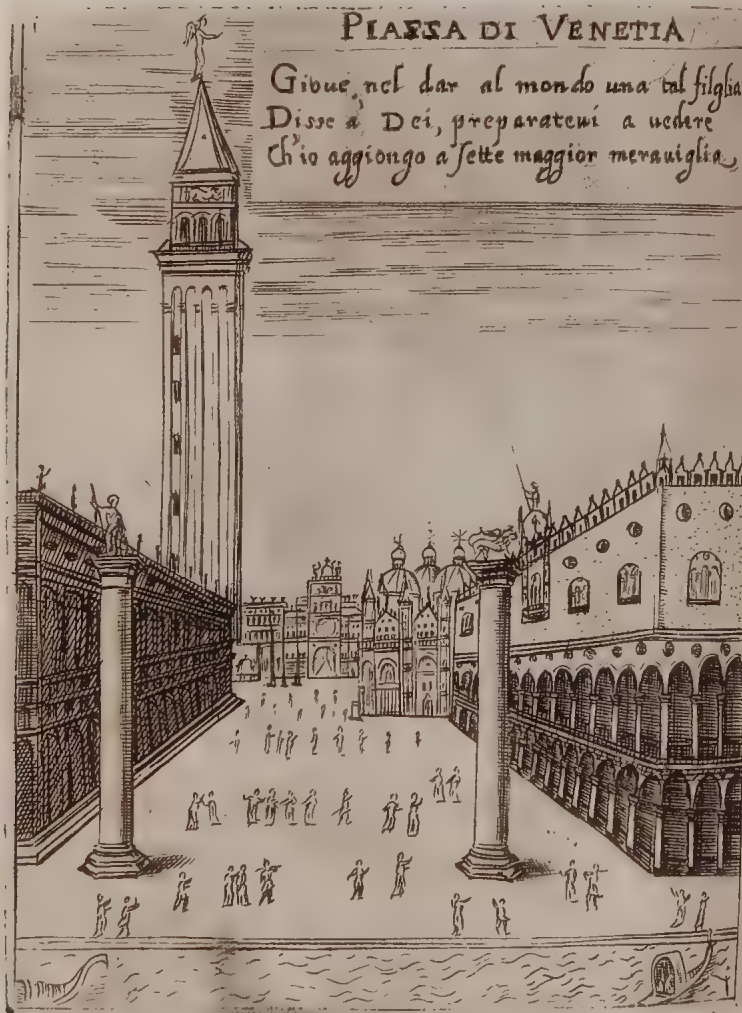 PIAZZA DI VENETIA
Gioue, nel dar al mondo una tal filglia
Disse a' Dei, preparateui a uedere
Ch'io aggiongo a sette maggior merauiglia